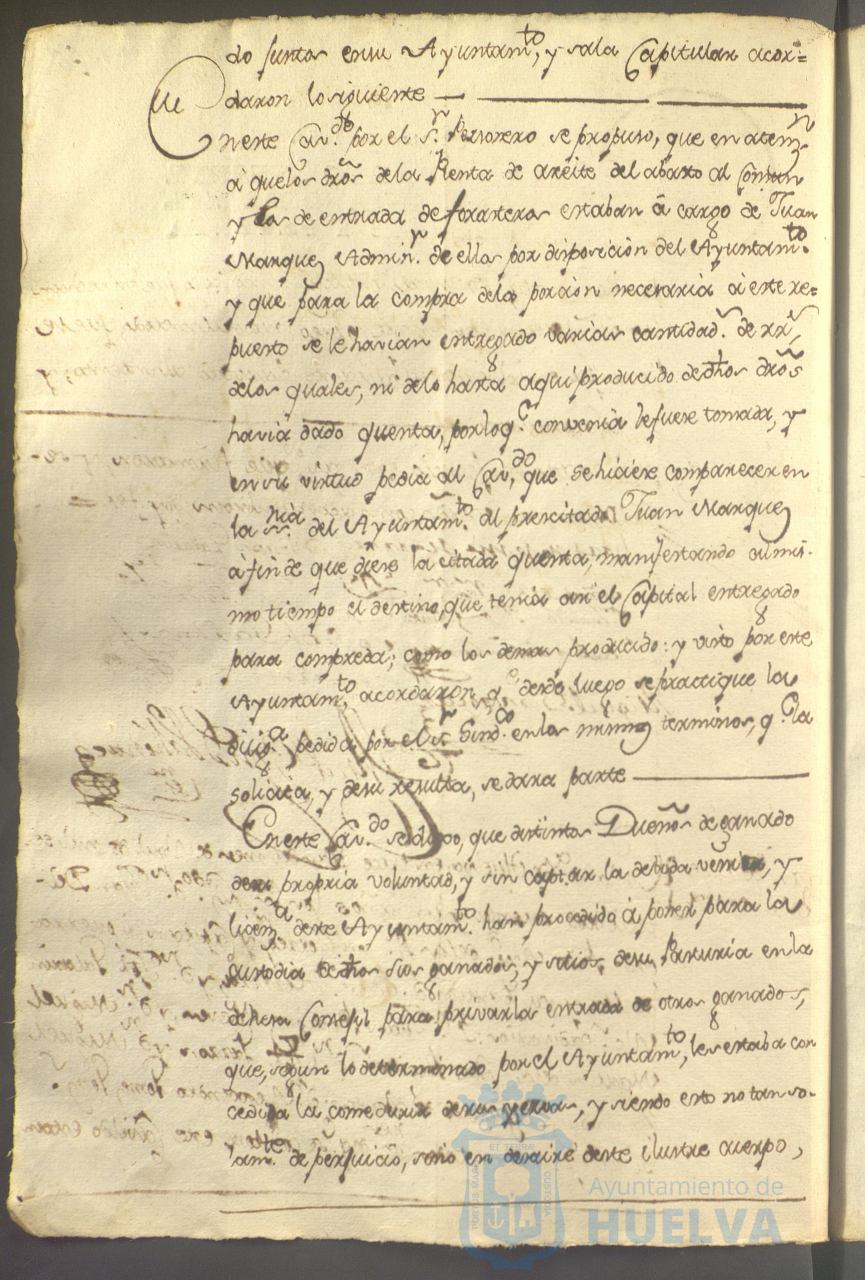 do juntos en su Ayuntam.to, y sala Capitular acor=
daron lo siguiente
En este Cav.do por el S.r Personero se propuso, que en aten.n
à que los dros de la Renta de aceite del abasto al Comun
y los de entrada de forasteros estaban à cargo de Juan
Marquez Admin.r de ellos por disposicion del Ayuntam.to
y que para la compra de la porcion necesaria à este re=
puesto se le havian entregado varias cantidad.s de rr.s,
de los quales, ni de lo hasta aqui producido de dhos dros
havia dado quenta, por lo q.e convenia le fuese tomada, y
en su virtud pedia al Cav.do que se hiciese comparecer en
la del Ayuntam.to al precitado Juan Marquez
à fin de que diese la citada quenta, manifestando al mis-
mo tiempo el destino, que tenia asi el Capital entregado
para compreda; como los demas producido: y visto por este
Ayuntam.to acordaron q.e desde luego se practique la
dilig.a pedida por el S.r Sind.co en los mismos terminos, q.e la
solicita, y de su resulta, se dara parte
En este Cav.do se dijo, que distintos Dueños de ganado
de su propria voluntad, y sin captar la debida venia, y
licenz.a deste Ayuntam.to han procedido à poner para la
custodia de dhos sus ganados, y sitios de su Pasturia en la
dehesa Consejil para privar la entrada de otros ganados,
que, segun lo determinado por el Ayuntam.to, les estaba con
cedida la comedura de sus yervas, y siendo esto no tan so-
lam.te de perjuicio, sino en desaire deste ilustre cuerpo,
Ayuntamiento de
HUELVA